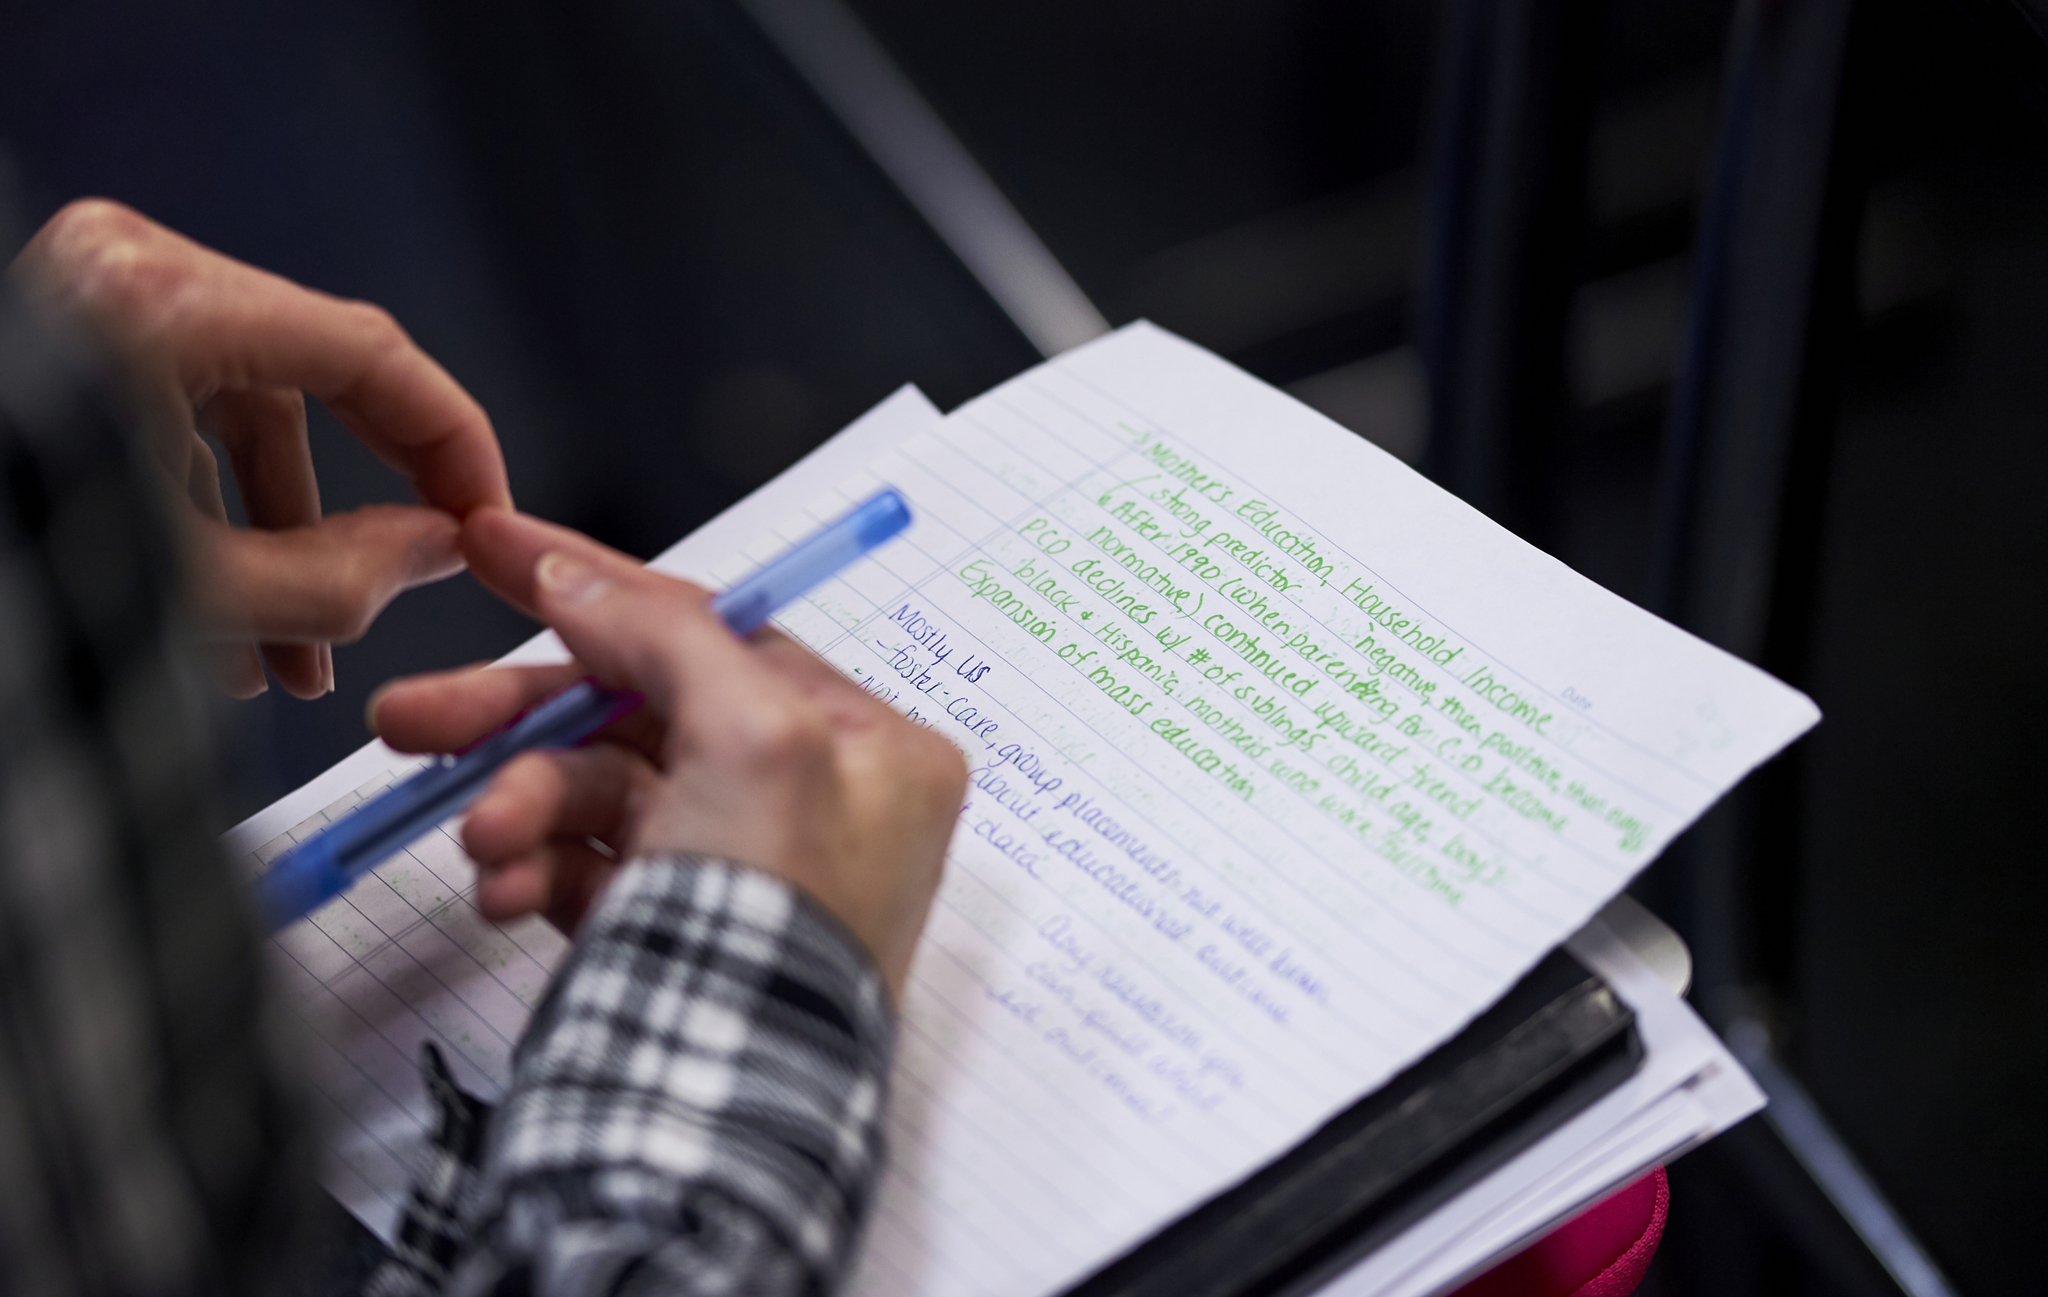 → Mother's Education, Household Income
strong predictor negative, then positive, then neg
After 1990 (when parenting for C.D become
normative) continued upward trend
PCD declines w/ # of siblings, child age, boys
black & Hispanic, mothers who work full time
Expansion of mass education
Date
Mostly US
- foster-care, group placements- not
- Not
About educational outcome
data
Any reason you
can find
outcome?